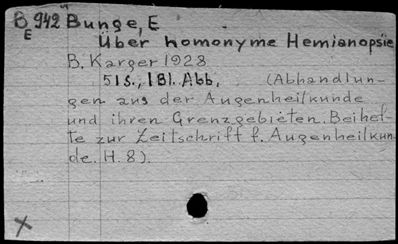 B 942 Bunge, E
E
Über homonyme Hemianopsie
B. Karger 1928
51 S., 181. Abb, (Abhandlun-
gen aus der Augenheilkunde
und ihren Grenzgebieten. Beihef-
te zur Zeitschrift f. Augenheilkun-
de. H. 8).
X